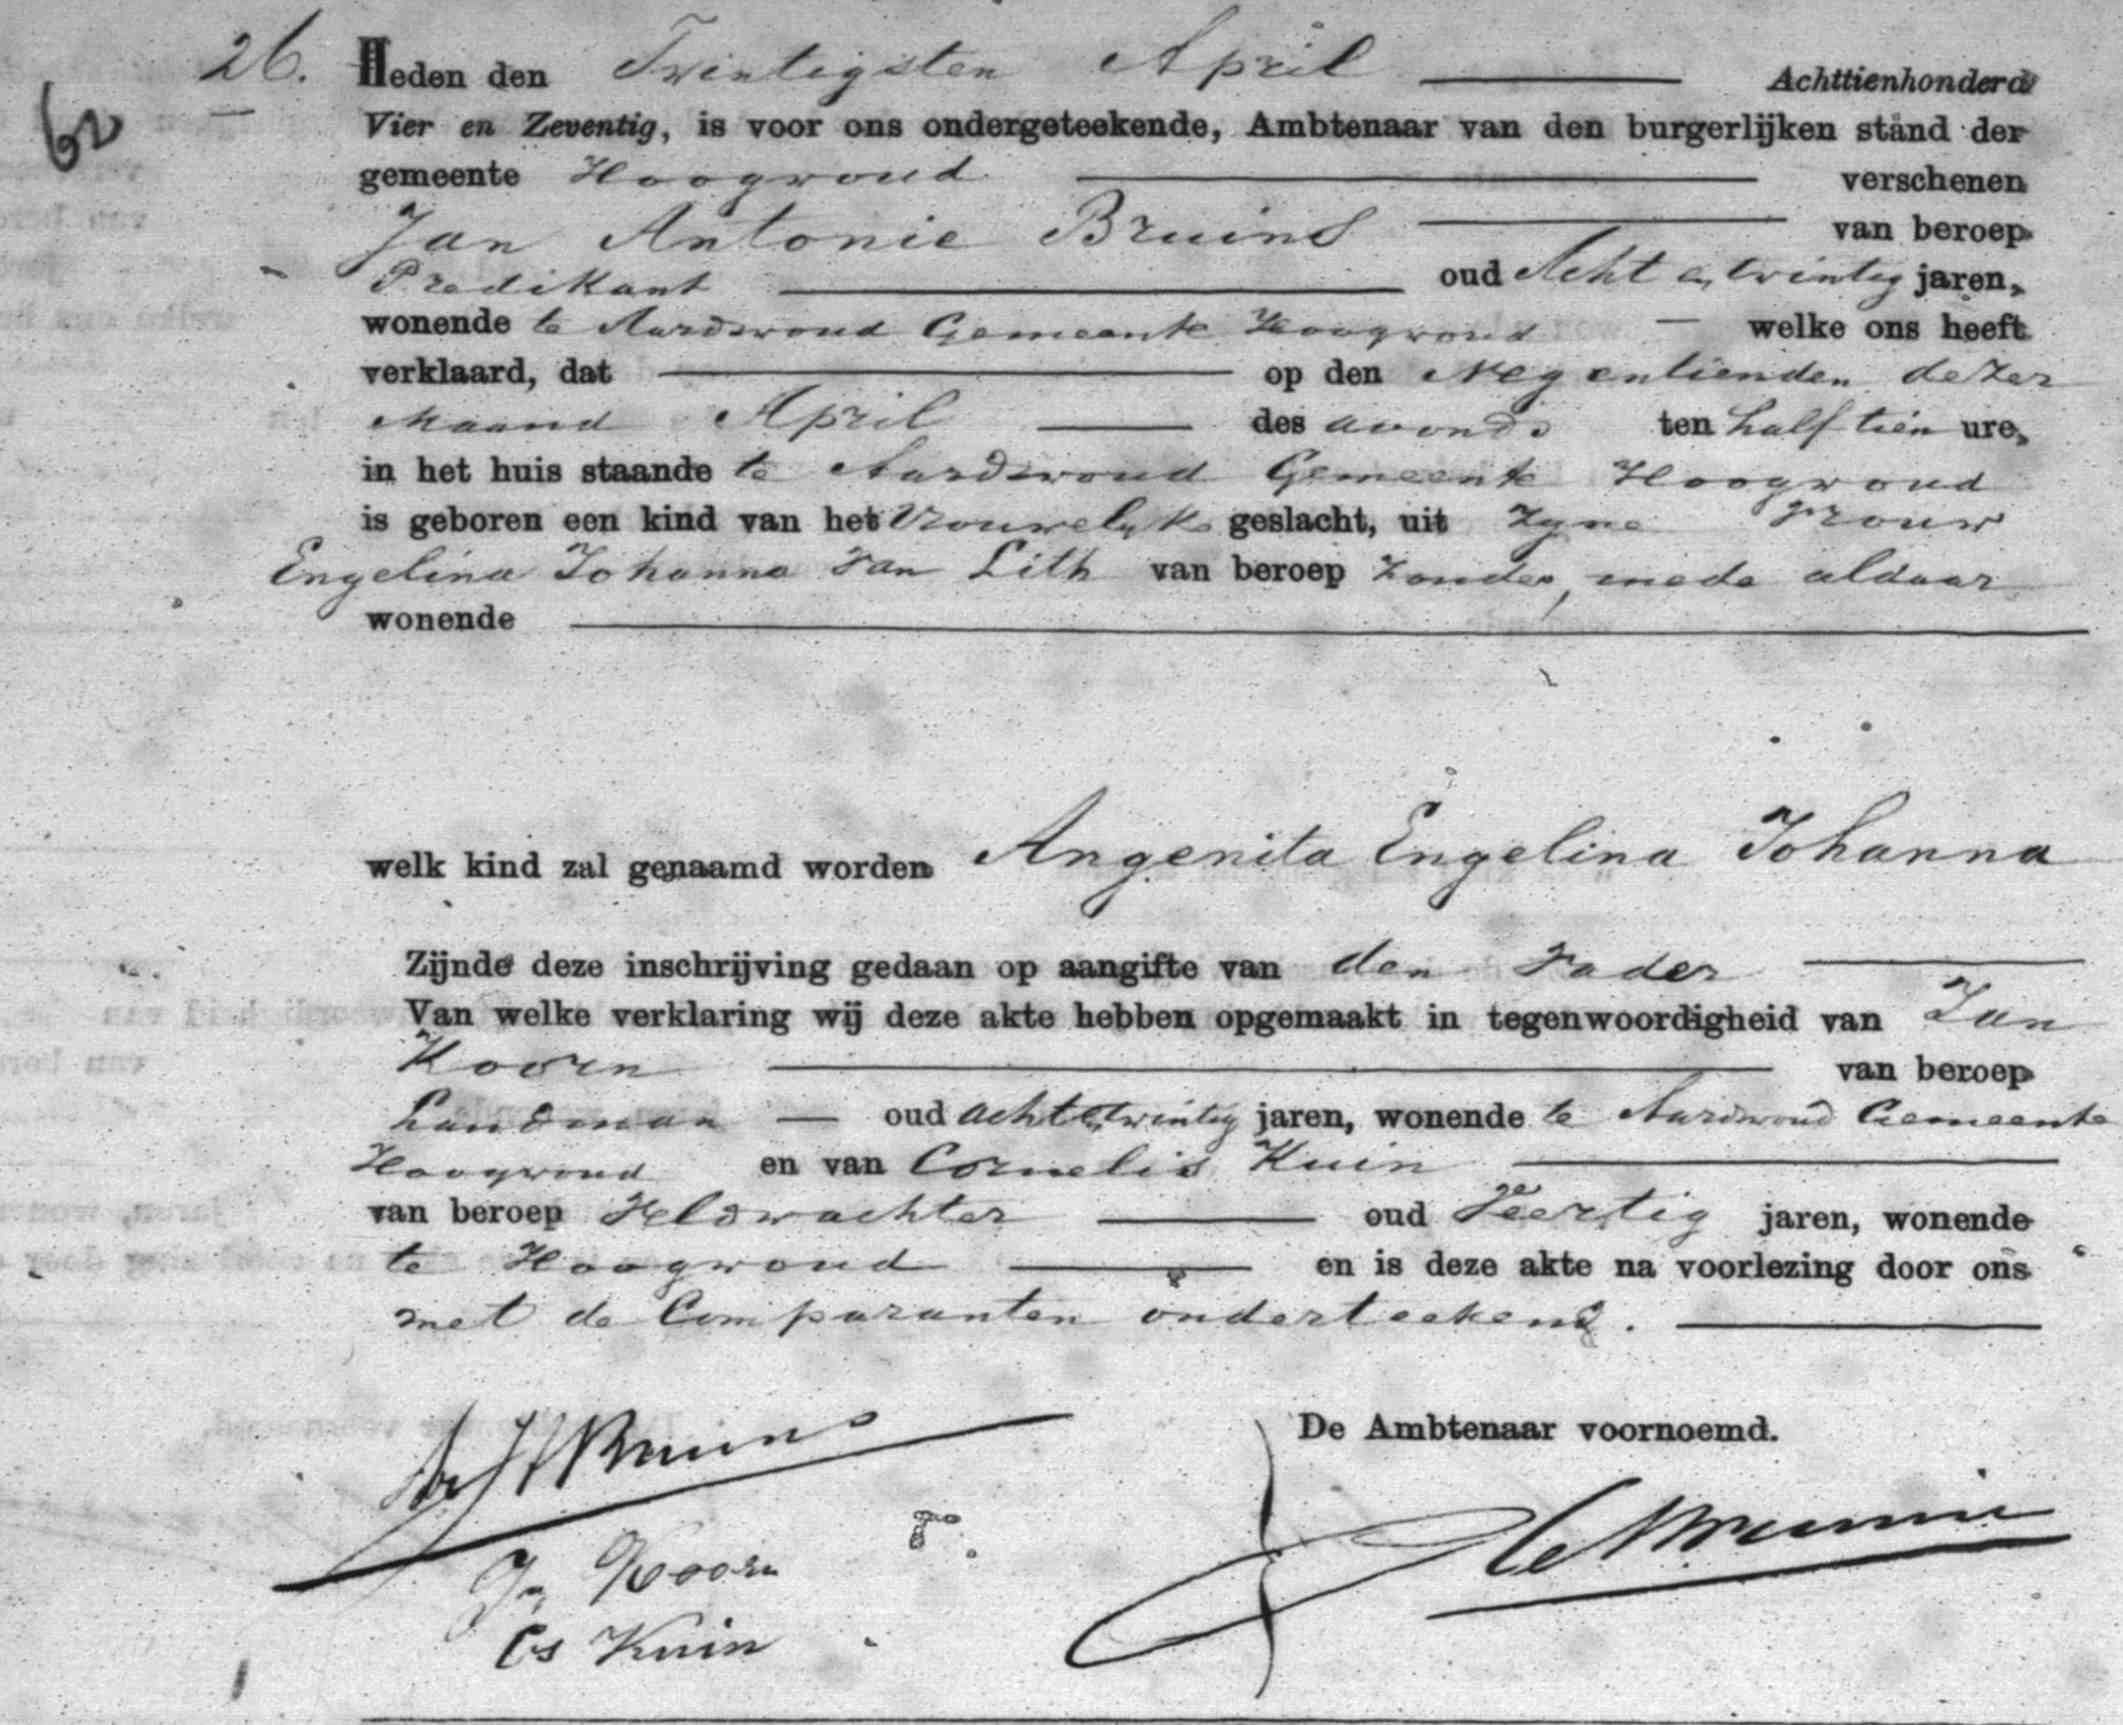 26. Heden den Twintigsten April Achttienhonderd
62
Vier en Zeventig, is voor ons ondergeteekende, Ambtenaar van den burgerlijken stand der
gemeente Hoogwoud verschenen
Jan Antonie Bruins van beroep
Predikant oud Acht en twintig jaren,
wonende te Aardswoud Gemeente Hoogwoud welke ons heeft
verklaard, dat op den Negentienden dezer
Maand April des avonds ten half tien ure,
in het huis staande te Aardswoud Gemeente Hoogwoud
is geboren een kind van het Vrouwelyk geslacht, uit zyne Vrouw
Engelina Johanna van Lith van beroep zonder, mede aldaar
wonende
welk kind zal genaamd worden Angenita Engelina Johanna
Zijnde deze inschrijving gedaan op aangifte van den Vader
Van welke verklaring wij deze akte hebben opgemaakt in tegenwoordigheid van Jan
Koorn van beroep
Landman oud acht en twintig jaren, wonende te Aardswoud Gemeente
Hoogwoud en van Cornelis Kuin
van beroep Veldwachter oud Veertig jaren, wonende
te Hoogwoud en is deze akte na voorlezing door ons
met de Comparanten onderteekend.
De Ambtenaar voornoemd.
Bruins
Jn Koorn
Cs Kuin